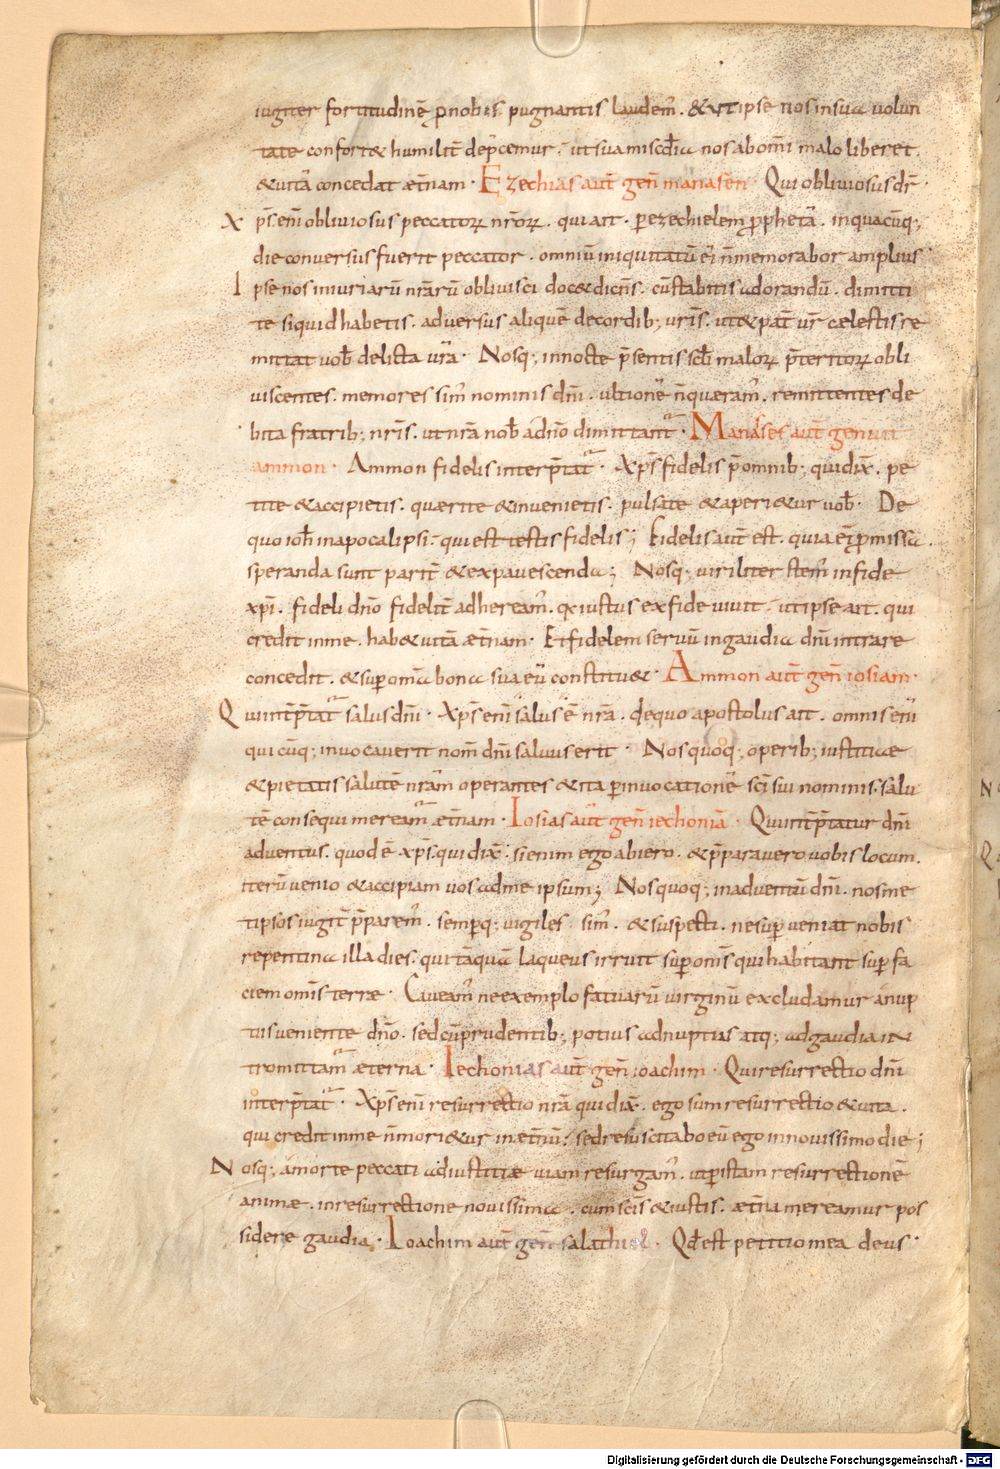 iugiter fortitudinē ꝓnobis pugnantis laudem̄. &ut ipse nos insua volun
tate confort& humilit̄ dep̄cemur. ut sua mis̄cdia nos abom̄i malo liberet.
&uitā concedat æt̄nam. Ezechias aut̄ gen̄ manasen. Qui obliuiosus dr̄.
Xp̄s. eni obliuiosus peccatoꝝ nr̄oꝝ. qui ait. ꝑezechielem ꝓphetā. inquacūq;
die conuersus fuerit peccator. omniū iniquitatū ei n̄memorabor amplius.
Ipse nos iniuriarū nr̄arū obliuisci doc& dicn̄s. cūstabitis adorandū. dimitti
te siquid habetis. aduersus aliquē decordib; uris̄. ut&pat̄ ur̄ cælestis re
mittat uob̄ delicta ur̄a. Nosq; innocte p̄sentis sc̄li maloꝝ p̄teritoꝝ obli
uiscentes. memores sim̄ nominis dn̄i. ultionē n̄quæram̄. remittentes de
bita fratrib; nris̄. ut nr̄a nob̄ adn̄o dimittant̄. Manases aut̄ genuit
ammon. Ammon fidelis interp̄tat̄. Xp̄s fidelis p̄omnib; quidix̄. pe
tite &accipietis. quærite &inuenietis. pulsate &aperi&ur uob̄. De
quo ioh̄ inapocalipsi. qui est testis fidelis; Fidelis aut̄ est. quia ei ꝓmissa.
speranda sunt parit̄ &expauescenda; Nosq; uiriliter stem̄ infide
xp̄i. fideli dn̄o fidelit̄ adheream̄. qa iustus exfide uiuit. ut ipse ait. qui
credit inme. hab& uitā æt̄nam. Et fidelem seruū ingaudia dn̄i intrare
concedit. &suꝑ om̄ia bona sua eū constitu&. Ammon aut̄ gen̄ iosiam.
Qui int̄p̄tat̄ salus dn̄i. Xp̄s eni salus ē nr̄a. dequo apostolus ait. omnis eni
qui cūq; inuocauerit nom̄ dn̄i saluus erit. Nos quoq; operib; iustitiæ
&pietatis salutē nr̄am operantes &ita ꝑinuocationē sc̄i sui nominis. salu
tē consequi meream̄ æt̄nam. Iosias aut̄ gen̄ iechoniā. Qui int̄p̄tatur dn̄i
aduentus. quod ē xp̄s. qui dix̄. si enim ego abiero. &p̄parauero uobis locum.
iterū uenio &accipiam uos adme ipsum; Nos quoq; inaduentū dn̄i. nosme
tipsos iugit̄ p̄parem̄. semꝑq; uigiles sim̄. &suspecti. nesuꝑueniat nobis
repentina illa dies. qui tāquā laqueus irruit suꝑ om̄s qui habitant suꝑ fa
ciem om̄is terræ. Caueam̄ ne exemplo fatuarū uirginū excludamur anup
tiis ueniente dn̄o. sed cūprudentib; potius adnuptias atq; adgaudia in
tromittam̄ æterna. Iechonias aut̄ gen̄ ioachim. Qui resurrectio dn̄i
interp̄tat̄. Xp̄s eni resurrectio nr̄a qui dix̄. ego sum resurrectio &uita.
qui credit inme n̄mori&ur inæt̄nū. sed resuscitabo eū ego innouissimo die;
Nosq; amorte peccati adiustitiæ uiam resurgam̄. ut ꝑistam resurrectionē
animæ. inresurrectione nouissima. cum sc̄is &iustis. æt̄na mereamur pos
sidere gaudia. Ioachim aut̄ gen̄ salathiel. Qd̄ est petitio mea deus.
Digitalisierung gefördert durch die Deutsche Forschungsgemeinschaft - DFG